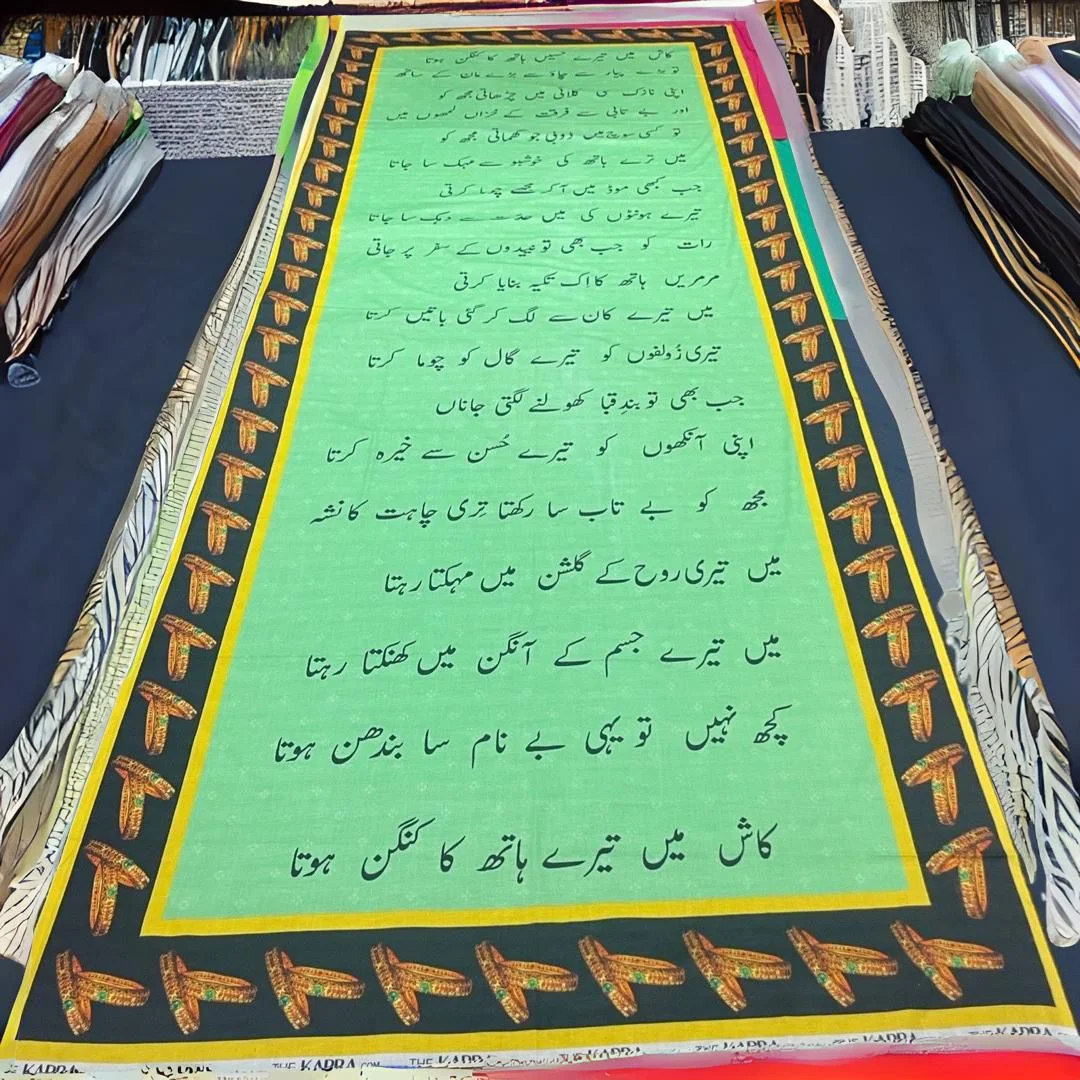 کاش میں تیرے حسیں ہاتھ کا کنگن ہوتا
تو بڑے پیار سے چاؤ سے بڑے مان کے ساتھ
اپنی نازک سی کلائی میں چڑھاتی مجھ کو
اور بے تابی سے فرقت کے خزاں لمحوں میں
تو کسی سوچ میں ڈوبی جو گھماتی مجھ کو
میں ترے ہاتھ کی خوشبو سے مہک سا جاتا
جب کبھی موڈ میں آ کر مجھے چوما کرتی
تیرے ہونٹوں کی میں حدت سے دہک سا جاتا
رات کو جب بھی تو نیندوں کے سفر پر جاتی
مرمریں ہاتھ کا اک تکیہ بنایا کرتی
میں تیرے کان سے لگ کر کئی باتیں کرتا
تیری زُولفوں کو تیرے گال کو چوما کرتا
جب بھی تو بندِ قبا کھولنے لگتی جاناں
اپنی آنکھوں کو تیرے حُسن سے خیرہ کرتا
مجھ کو بے تاب سا رکھتا تِری چاہت کا نشہ
میں تیری روح کے گلشن میں مہکتا رہتا
میں تیرے جسم کے آنگن میں کھنکتا رہتا
کچھ نہیں تو یہی بے نام سا بندھن ہوتا
کاش میں تیرے ہاتھ کا کنگن ہوتا
THE KAPRA.COM THE KAPRA